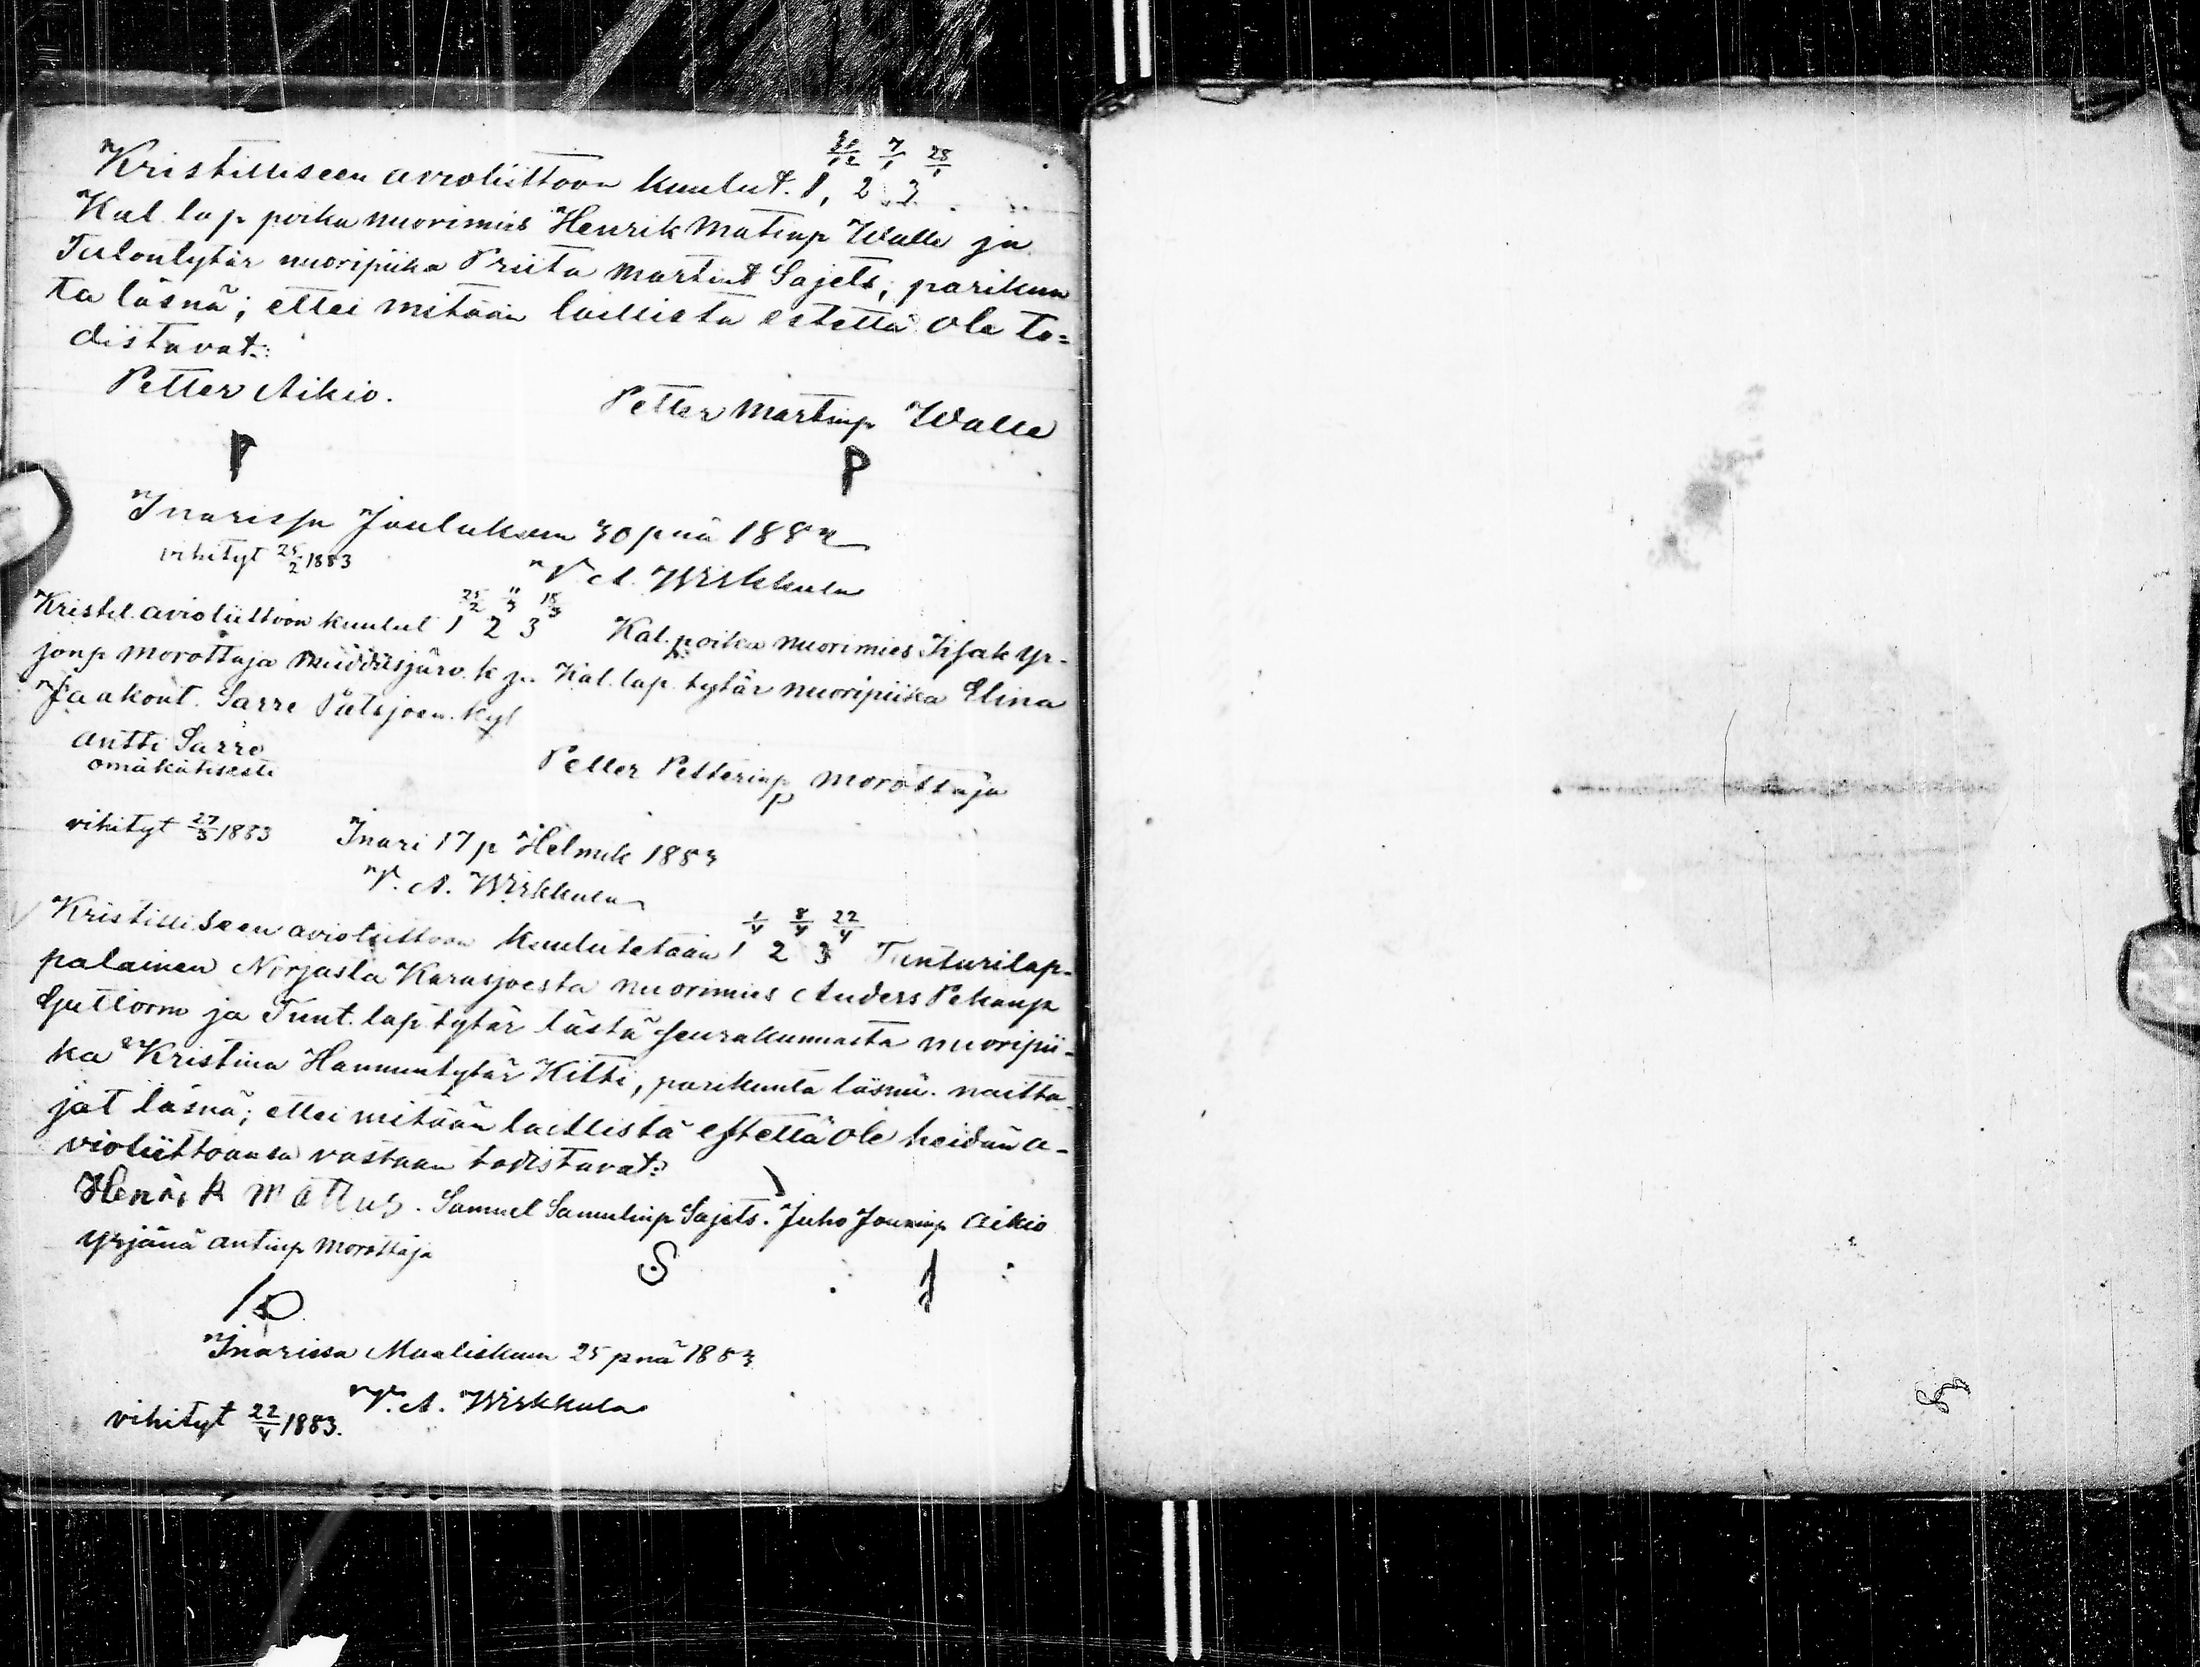 31/12 7/1 28/1
Kristilliseen avioliittoon kuulut. 1, 2 3
Kal. lap poika nuorimies Henrik Matinp Walle ja
Tulontytär nuoripiika Priita Martint Sajets, parikun
ta läsnä; ettei mitään laillista estettä ole to=
distavat:
Petter Aikio. Petter Martinp Walle
P P
Inarissa Joulukuun 30 pnä 1882
vihityt 25/2 1883 V. A. Wirkkula
25/2 11/3 18/3
Kristil. avioliittoon kuulut 1 2 3 Kal. poika nuorimies Iisak Yr-
jönp Morottaja Muddusjärv. k ja Kal. lap. tytär nuoripiika Elina
Jaakont. Sarre Patsjoen. kyl
Antti Sarre
omakätisesti Petter Petterinp Morottaja
P
vihityt 27/3 1883 Inari 17 p Helmik 1883
V. A. Wirkkula
1/4 8/4 22/4
Kristilliseen avioliittoon kuulutetaan 1 2 3 Tunturilap-
palainen Norjasta Karasjoesta nuorimies Anders Pekanp
Guttorm ja Tunt. lap. tytär tästä seurakunnasta nuoripii-
ka Kristina Hannuntytär Kitti, parikunta läsnä. naitta-
jat läsnä; ettei mitään laillista estettä ole heidän a-
violiittoansa vastaan todistavat:
Henrik Mattus. Samuel Samulinp Sajets. Juho Jouninp Aikio
Yrjänä Antinp Morottaja
S J
Inarissa Maaliskuun 25 pnä 1883
V. A. Wirkkula
vihityt 22/4 1883.